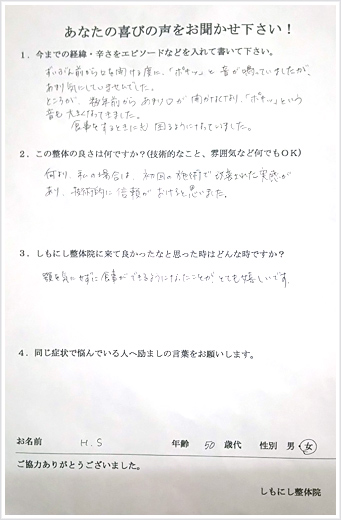 あなたの喜びの声をお聞かせ下さい！
１．今までの経緯・辛さをエピソードなどを入れて書いて下さい。
ずいぶん前から口を開ける度に、「ポキッ」と音が鳴っていましたが、
あまり気にしていませんでした。
ところが、数年前からあまり口が開かなくなり、「ポキッ」という
音も大きくなってきました。
食事をするときにも困るようになっていました。
２．この整体の良さは何ですか？(技術的なこと、雰囲気など何でもＯＫ)
何より、私の場合は、初回の施術で改善された実感が
あり、技術的に信頼がおけると思いました。
３．しもにし整体院に来て良かったなと思った時はどんな時ですか？
顎を気にせずに食事ができるようになったことが、とても嬉しいです。
４．同じ症状で悩んでいる人へ励ましの言葉をお願いします。
お名前 H.S 年齢 50 歳代 性別 男・女
ご協力ありがとうございました。
しもにし整体院